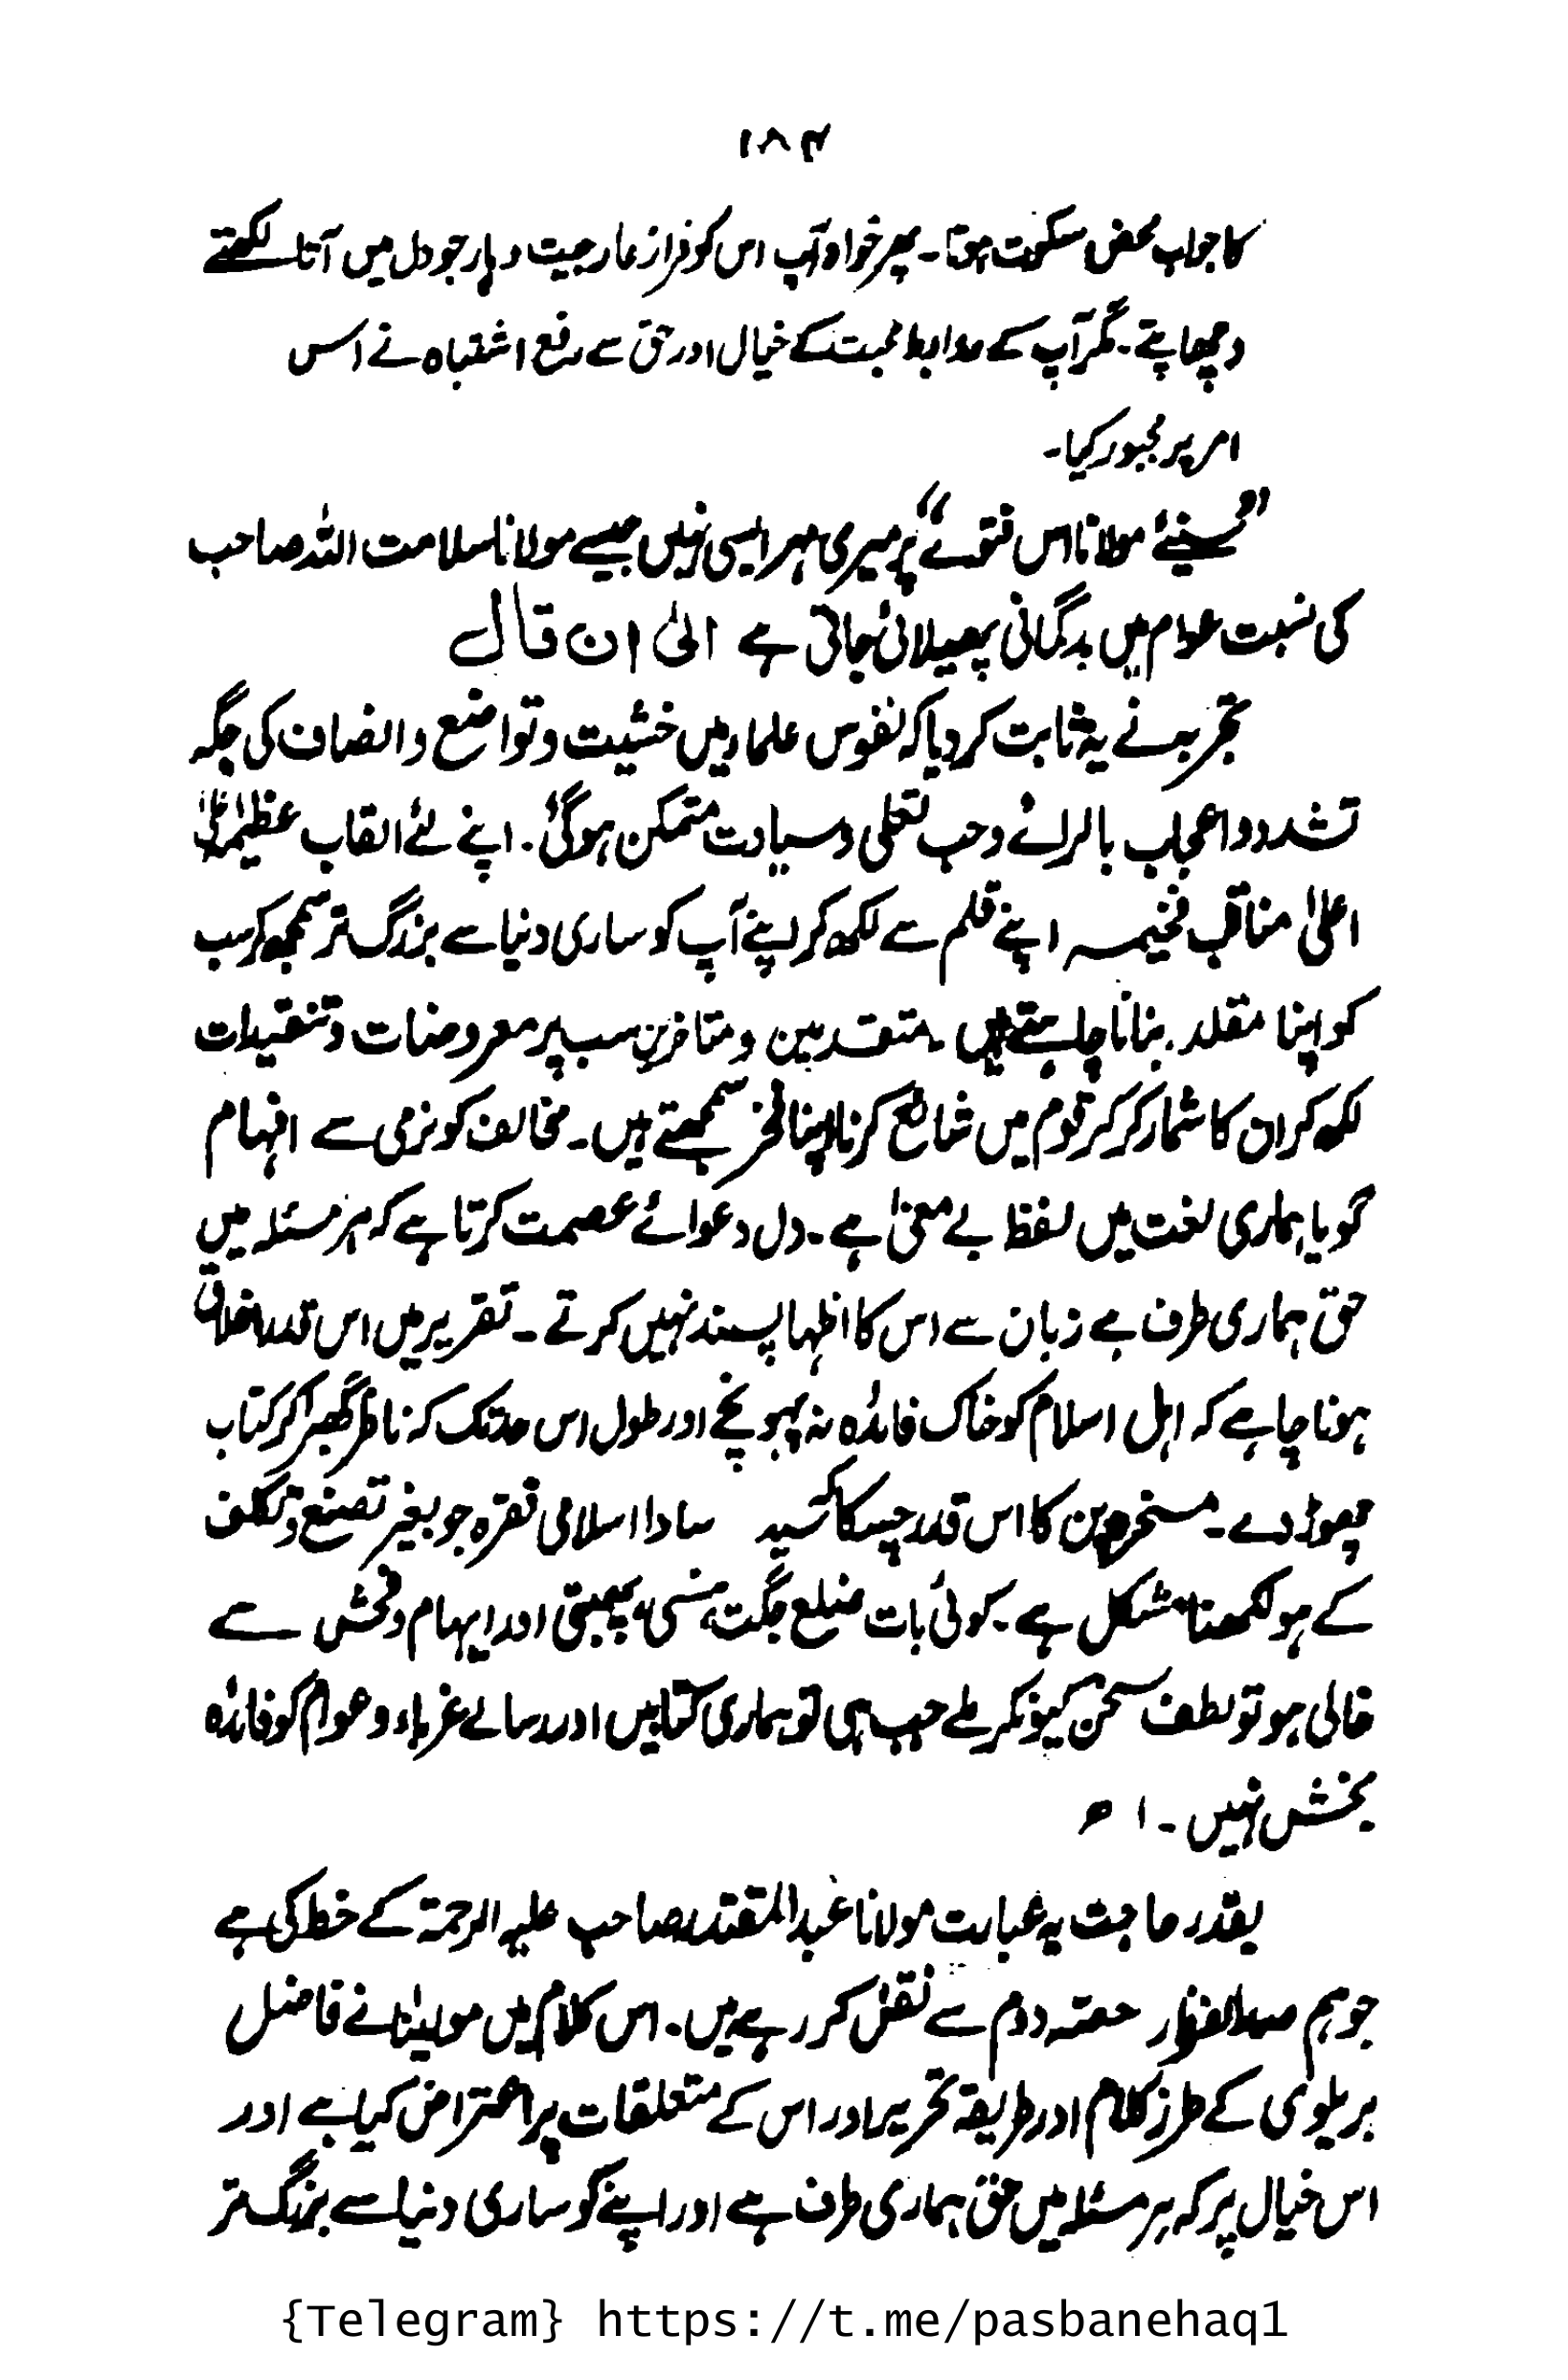 ۱۸۴
کا جواب محض سکوت ہوتا۔ پھر خواہ آپ اس کو فرار عار جیت و ہار جو دل میں آتا لکھتے
وچھاپتے۔ مگر آپ کے روابط محبت کے خیال اور حق سے رفع اشتباہ نے اس
امر پر مجبور کیا۔
”سنیئے مولانا اس فتوے“ پر میری مہر ایسی نہیں جیسے مولانا سلامت اللہ صاحب
کی نسبت عوام میں بدگمانی پھیلائی جاتی ہے الیٰ ان قال
تجربہ نے یہ ثابت کردیا کہ نفوس علماء میں خشیت و تواضع و انصاف کی جگہ
تشدد و اعجاب بالرائے وحب تعلی وسیادت متمکن ہوگئی۔ اپنے لئے القاب عظیمہ
اعلیٰ مناقب فخیمہ اپنے قلم سے لکھ کر اپنے آپ کو ساری دنیا سے بزرگ تر سمجھ کر سب
کو اپنا مقلد بنانا چاہتے ہیں۔ متقدمین و متاخرین سب پر معروضات و تنقیدات
لکھ کر ان کا شمار کر کر قوم میں شائع کرنا اپنا فخر سمجھتے ہیں۔ مخالف کو نرمی سے افہام
گویا ہماری لغت میں لفظ بے معنیٰ ہے۔ دل دعوائے عصمت کرتا ہے کہ ہر مسئلہ میں
حق ہماری طرف ہے زبان سے اس کا اظہا پسند نہیں کرتے ۔ تقریر میں اس قدر اغلاق
ہونا چاہے کہ اہل اسلام کو خاک فائدہ نہ پہونچے اور طول اس حد تک کہ ناظر گھبرا کر کتاب
چھوڑ دے۔ مسخرہ پن کا اس قدر چسکا کہ سادا اسلامی فقرہ جو بغیر تصنع و تکلف
کے ہو لکھنا مشکل ہے۔ کوئی بات ضلع جگت، ہنسی، پھبتی اور ایہام و فحش سے
خالی ہو تو لطف سخن کیونکر ملے جب ہی تو ہماری کتابیں اور رسالے غرباء و عوام کو فائدہ
بخش نہیں ۔ ا ھ
بقدر حاجت یہ عبارت مولانا عبدالمقتدر صاحب علیہ الرحمۃ کے خط کی ہے
جو ہم سدالفرار حصہ دوم سے نقل کر رہے ہیں۔ اس کلام میں مولینا نے فاضل
بریلوی کے طرز کلام اور طریقۂ تحریر اور اس کے متعلقات پر اعتراض کیا ہے اور
اس خیال پر کہ ہر مسئلہ میں حق ہماری طرف ہے اور اپنے کو ساری دنیا سے بزرگ تر
{Telegram} https://t.me/pasbanehaq1